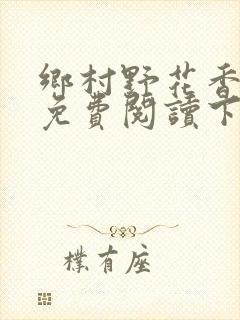 鄉村野花香
免費閱讀下
樸有座